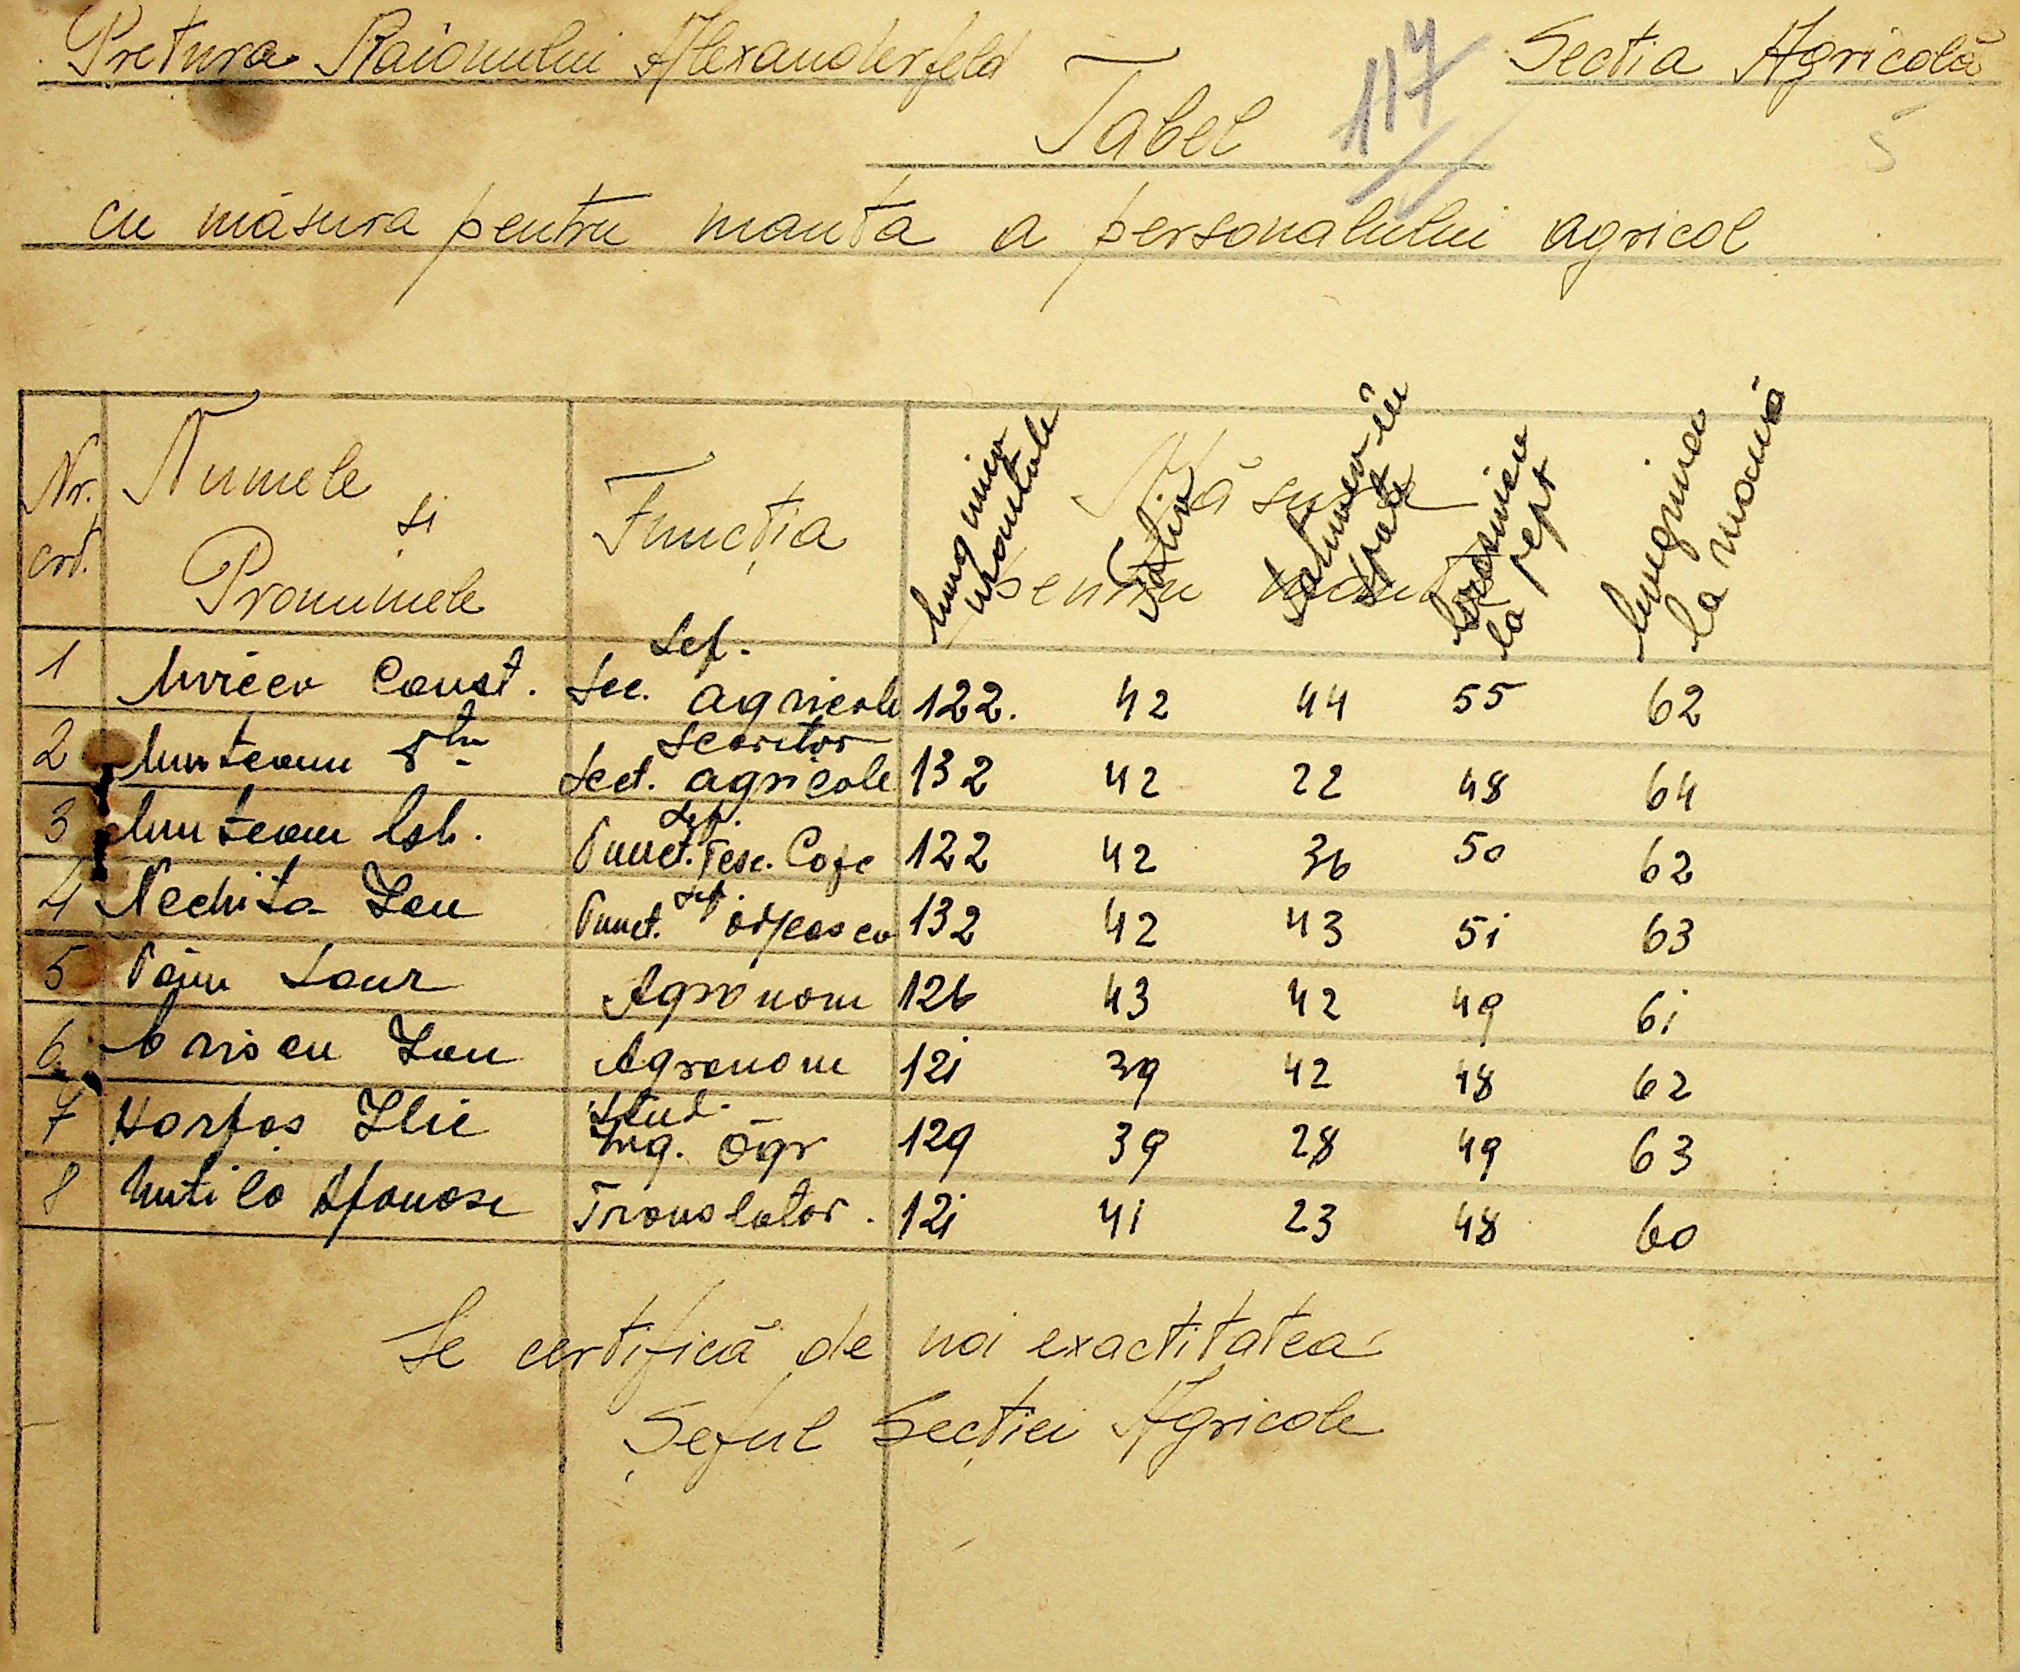 Pretura Raionului Alexanderfeld
Sectia Agricolă
117
5
Tabel
cu măsura pentru manta a personalului agricol
Nr. crt. Numele și Pronumele Funcția Măsura pentru manta
Lungimea mantalei Talia Latimea în spate Grosimea la pept Lungimea la mână
1 Const. Șef. Sec. agricole 122. 42 44 55 62
2 Munteanu Scriitor Sect. agricole 132 42 22 48 64
3 Munteanu Șef. Punct. 122 42 36 50 62
4 Nechita Ion Șef. Punct. 132 42 43 51 63
5 Păun Agronom 126 43 42 49 61
6 Ion Agronom 121 39 42 48 62
7 Ilie Stud. Ing. Agr 129 39 28 49 63
8 Translator. 121 41 23 48 60
Se certifică de noi exactitatea
Șeful Secției Agricole